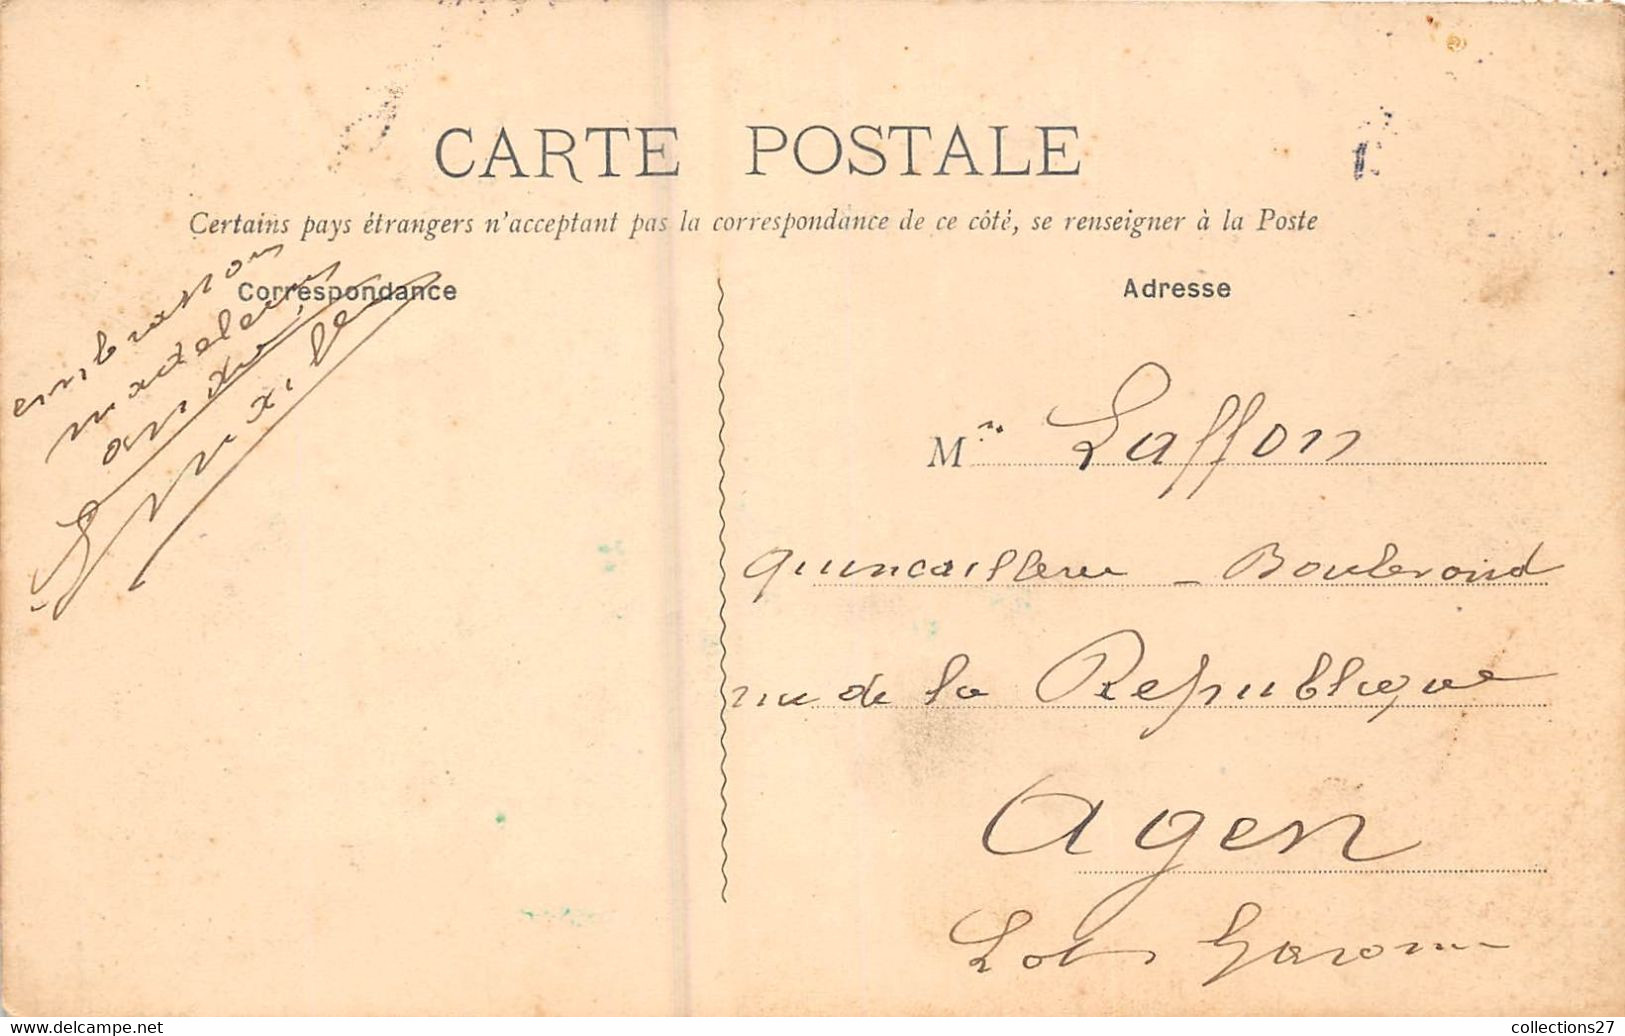 CARTE POSTALE
Certains pays étrangers n'acceptant pas la correspondance de ce côté, se renseigner à la Poste
Correspondance
Adresse
Mme Laffon
quincaillerie - Boulevard
rue de la Republique
Agen
Lot Garonne
www.delcampe.net
collections27